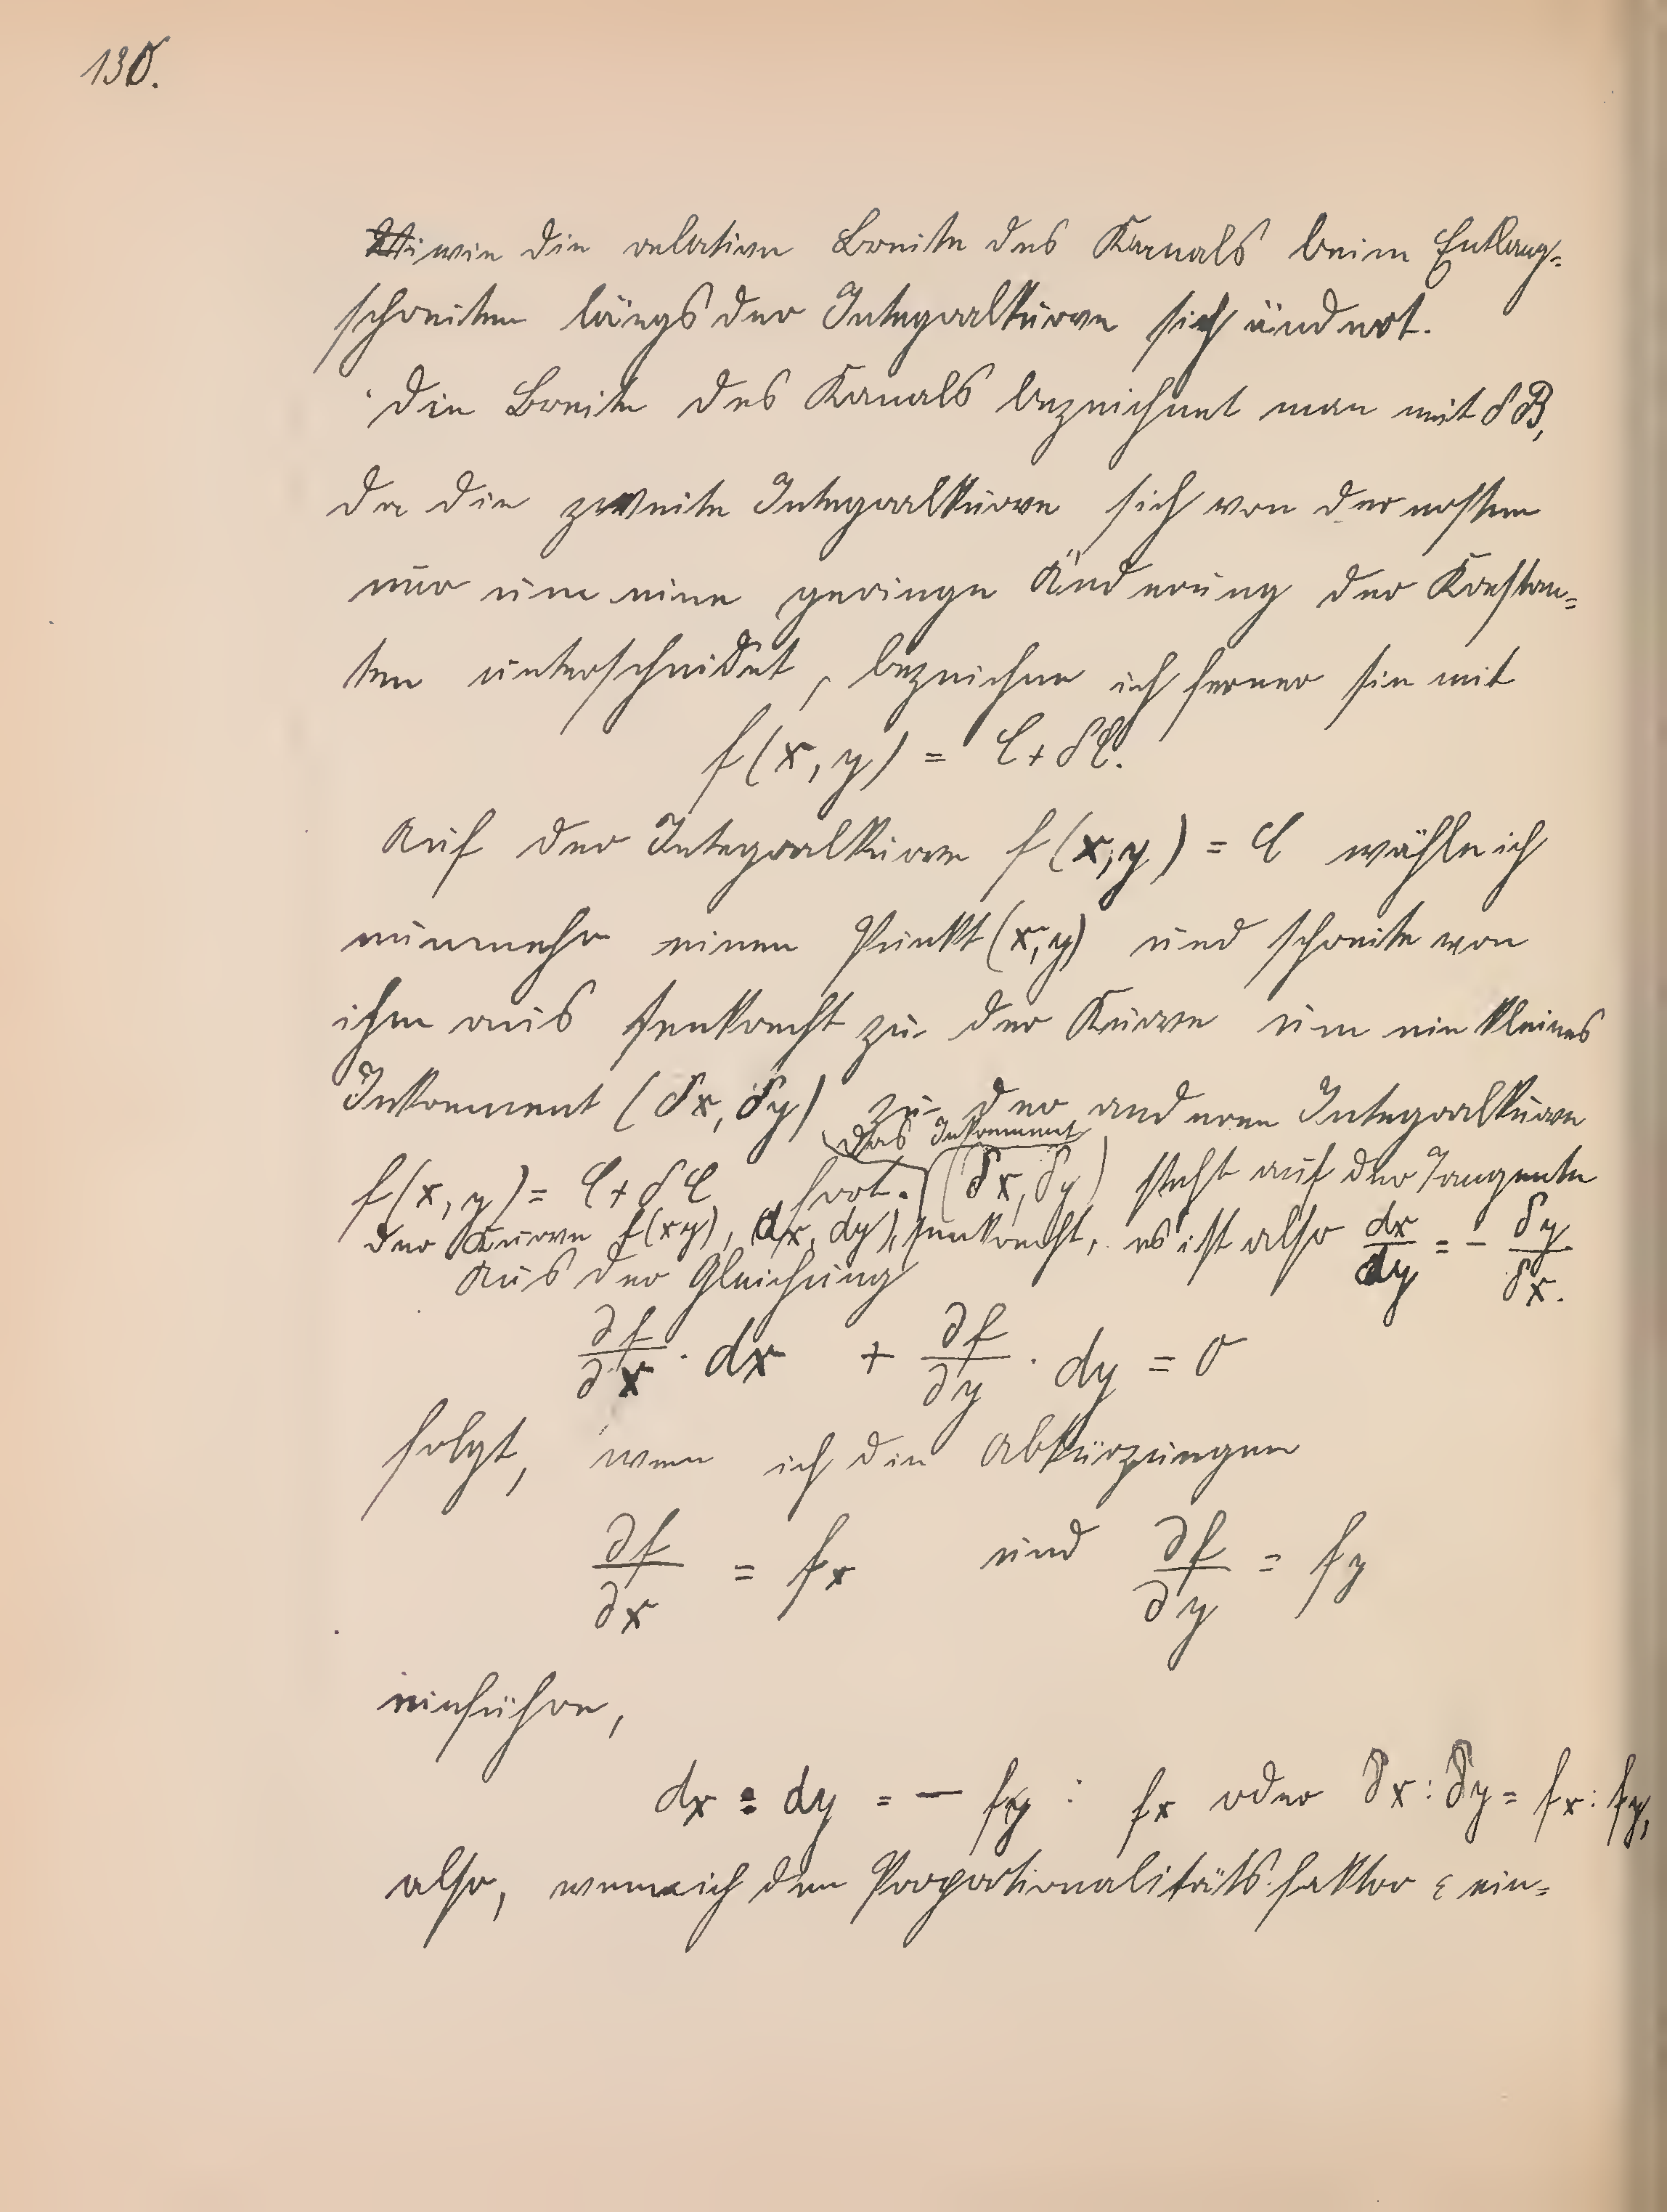 130.
wie die relative Breite des Kanals beim Entlang-
schreiten längs der Integralkurve sich ändert.
Die Breite des Kanals bezeichnet man mit δB,
da die zweite Integralkurve sich von der ersten
nur um eine geringe Änderung der Konstan-
ten unterscheidet, bezeichne ich ferner sie mit
f(x,y) = C + δC.
Auf der Integralkurve f(x,y) = C wähle ich
nunmehr einen Punkt (x,y) und schreite von
ihm aus senkrecht zu der Kurve um ein kleines
Inkrement (δx, δy) zu der anderen Integralkurve
das Inkrement
f(x,y) = C + δC fort. (δx, δy) steht auf der Tangente
der Kurve f(xy), (dx, dy), senkrecht, es ist also dx/dy = - δy/δx.
Aus der Gleichung
∂f/∂x · dx + ∂f/∂y · dy = 0
folgt, wenn ich die Abkürzungen
∂f/∂x = fx und ∂f/∂y = fy
einführe,
dx : dy = - fy : fx oder δx : δy = fx : fy,
also, wenn ich den Proportionalitätsfaktor ε ein-